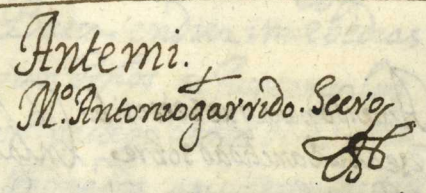 Antemi.
Mº. Antonio garrido. Secrº